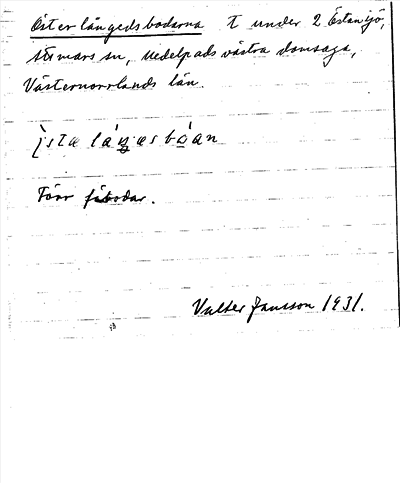 Österlångedsbodarna t under 2 Östansjö,
Attmars sn, Medelpads västra domsaga,
Västernorrlands län.
Förr fäbodar.
Valter Jansson 1931.